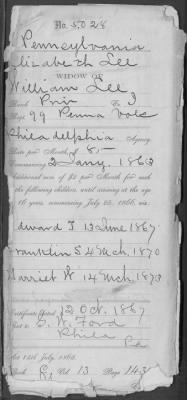 No. 5,028
Pennsylvania
Elizabeth Lee
WIDOW OF
William Lee
Rank Priv Co
Reg 99 Penna Vols
Philadelphia Agency
Rate per Month, $ 8
Commencing 2 Jany. 1863
Additional sum of $2 per Month for each
of the following children, until arriving at the age
of 16 years, commencing July 25, 1866, viz:
Edward J 13 June 1867
Franklin S 4 Mch. 1870
Harriet W 14 Mch. 1873
Certificate dated 12 Oct. 1867
Sent to W. Ford
Phila
Pa
Act 14th July, 1862.
Book Vol 13 Page 143